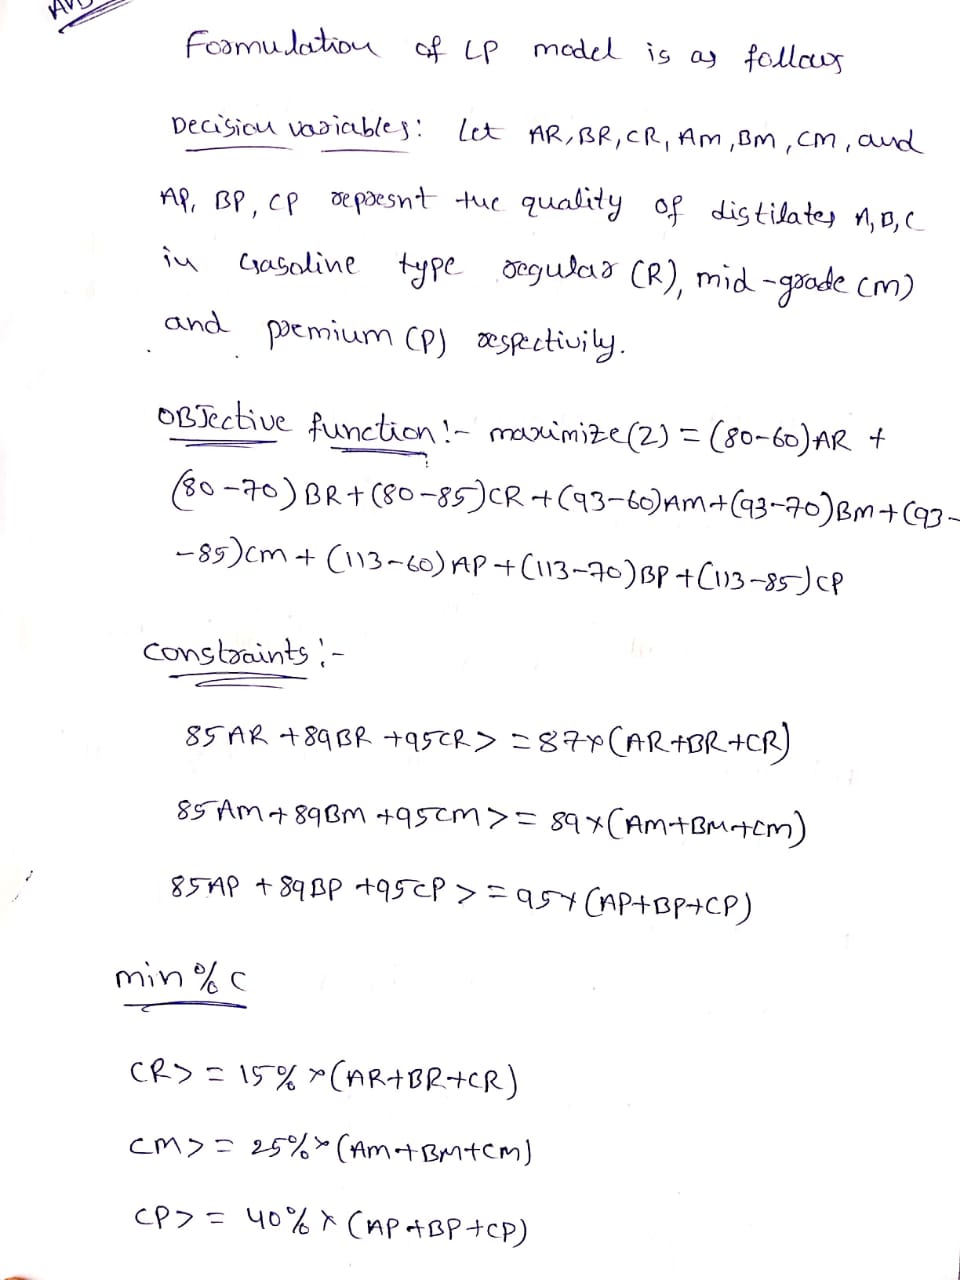 Formulation of LP model is as follows
Decision variables: Let AR, BR, CR, AM, BM, CM, and
AP, BP, CP repaesnt the quality of distilates A, B, C
in Gasoline type regular (R), mid-grade (M)
and premium (P) respectivily.
OBJective function:- maximize(Z) = (80-60)AR +
(80-70)BR + (80-85)CR + (93-60)AM + (93-70)BM + (93-
-85)CM + (113-60)AP + (113-70)BP + (113-85)CP
Constraints:-
85AR + 89BR + 95CR > = 87×(AR+BR+CR)
85AM + 89BM + 95CM > = 89×(AM+BM+CM)
85AP + 89BP + 95CP > = 95×(AP+BP+CP)
min % C
CR > = 15% ×(AR+BR+CR)
CM > = 25% ×(AM+BM+CM)
CP > = 40% ×(AP+BP+CP)